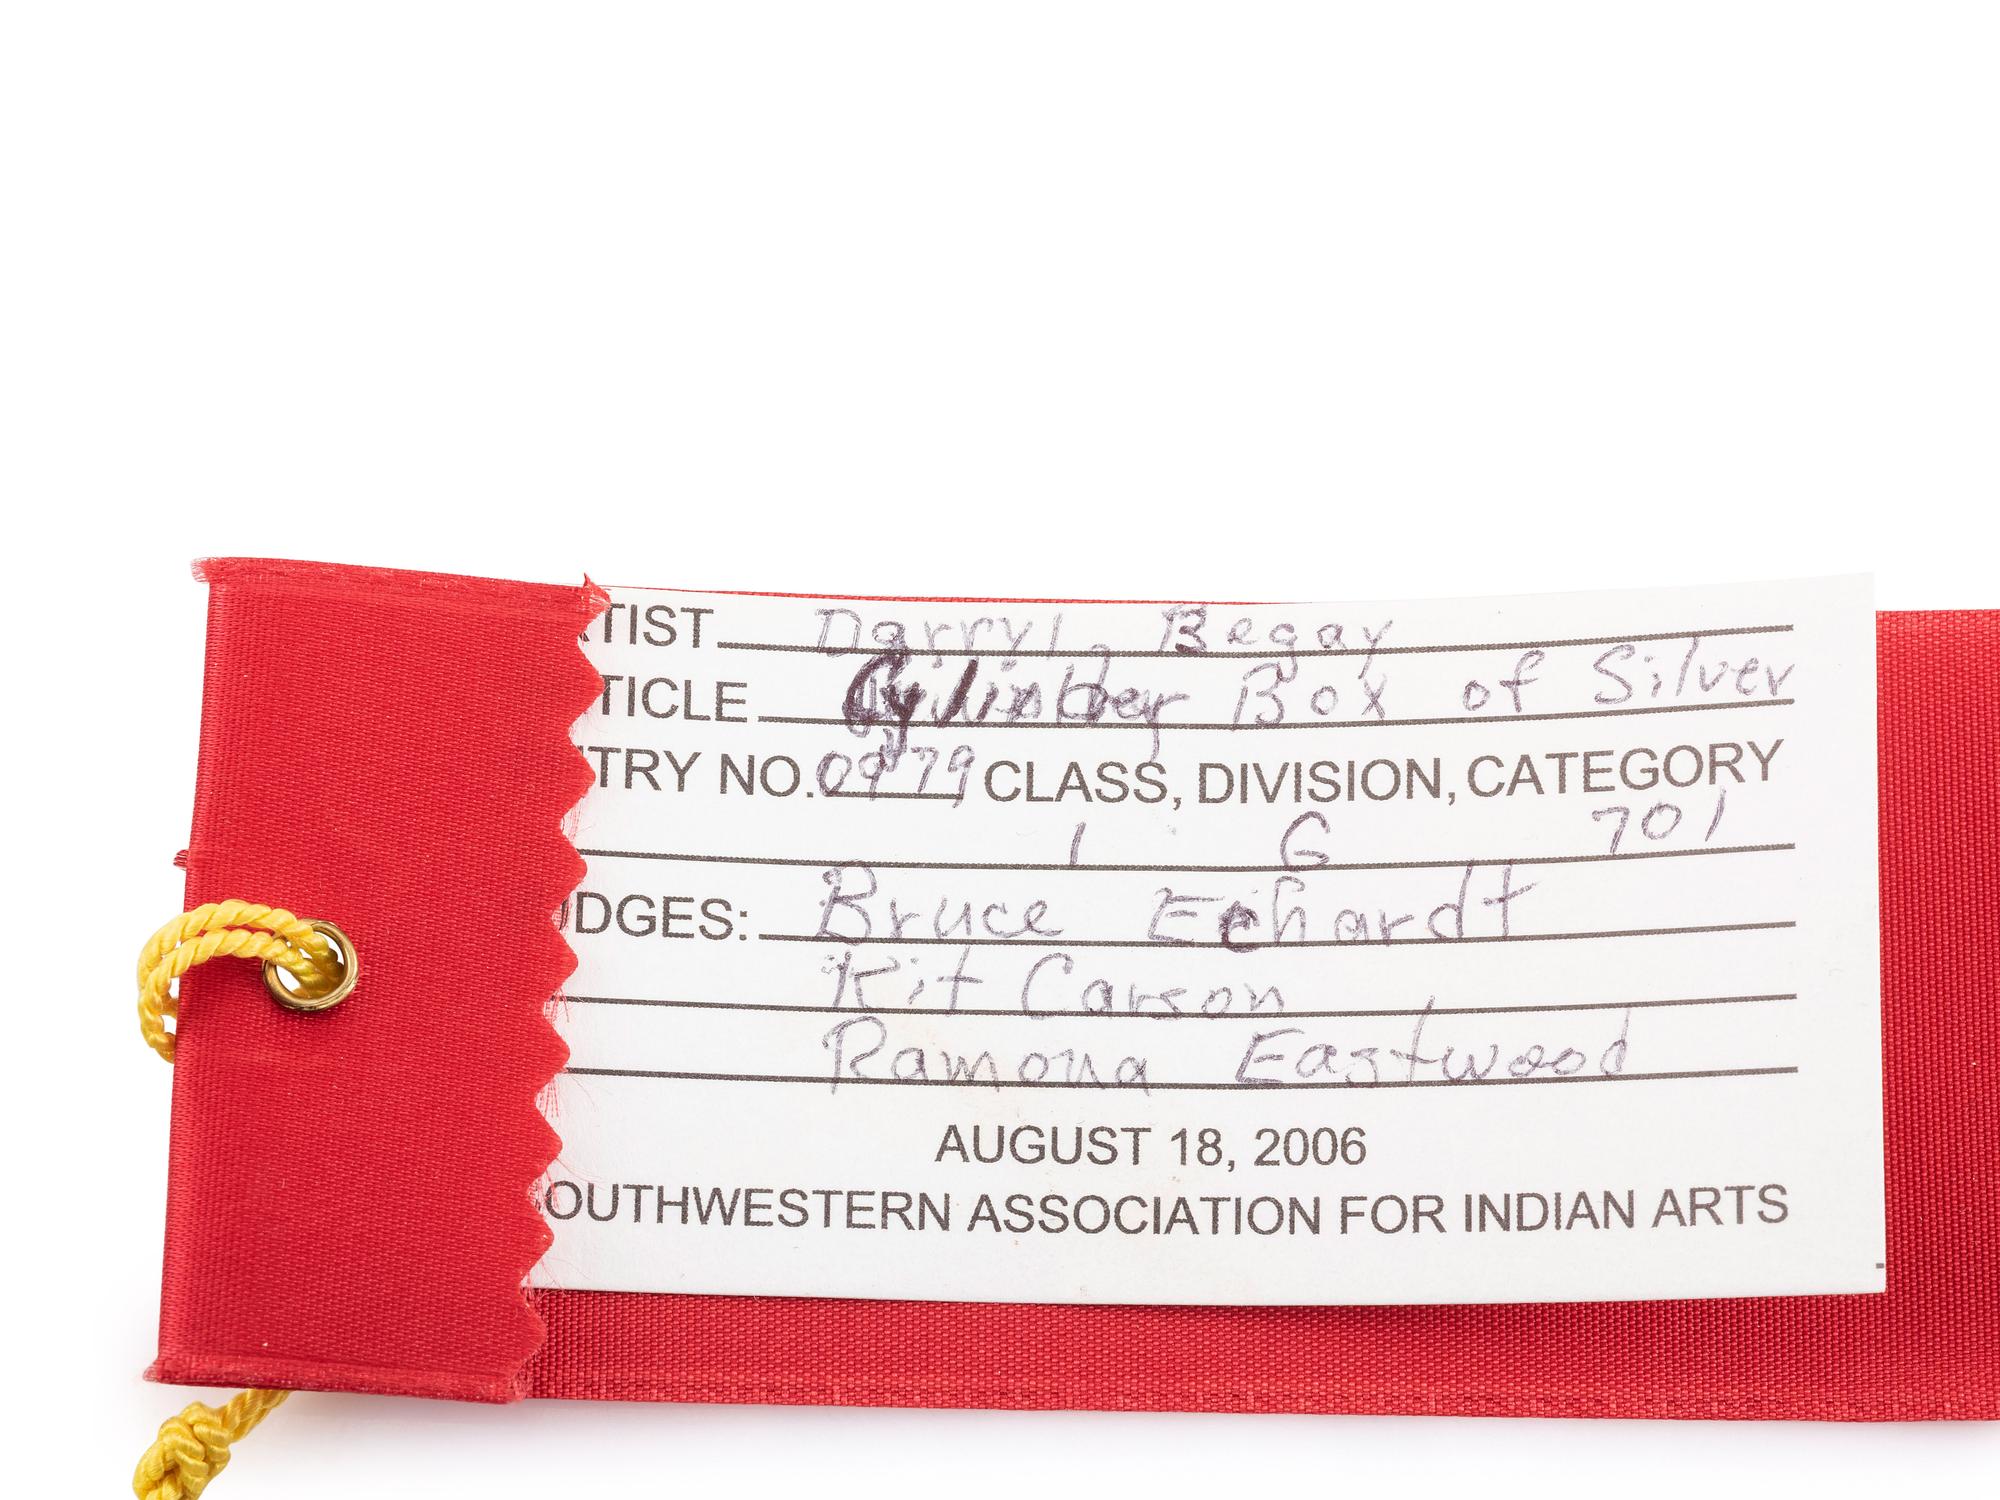 TIST Darryl Begay
TICLE Cylinder Box of Silver
TRY NO. 0979 CLASS, DIVISION, CATEGORY
1 G 701
DGES: Bruce Echardt
Kit Carson
Ramona Eastwood
AUGUST 18, 2006
OUTHWESTERN ASSOCIATION FOR INDIAN ARTS